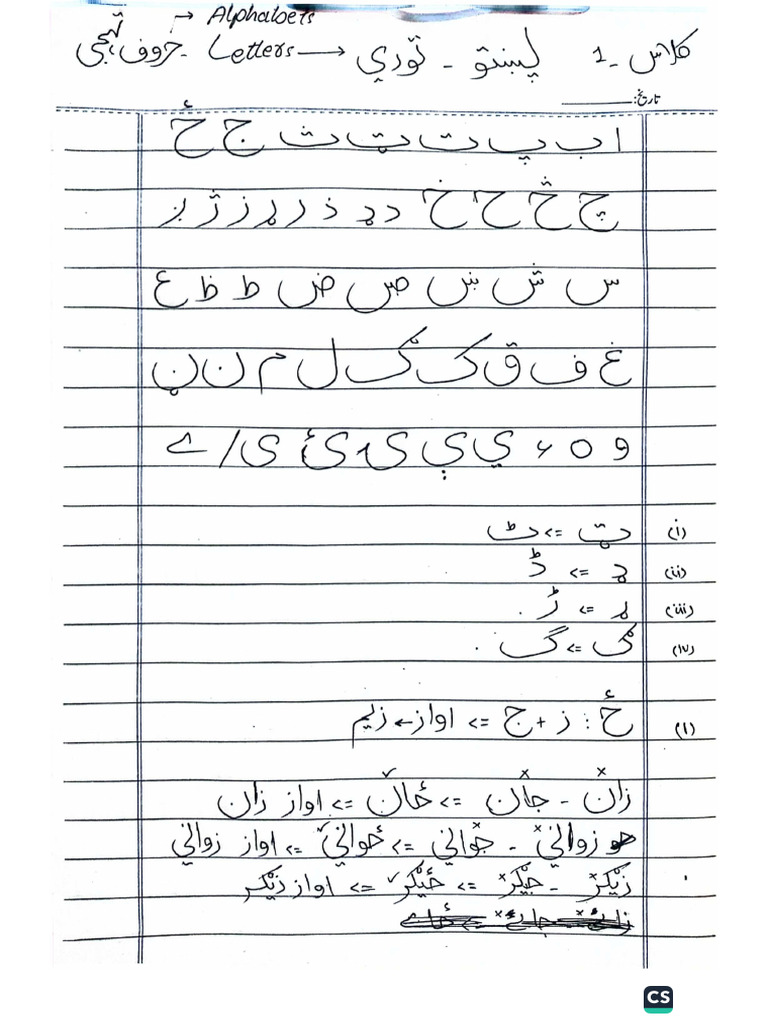 → Alphabets
کلاس ـ 1 پښتو ـ توري ← Letters ـ حروف تہجی
تاریخ:
ا ب پ ت ټ ث ج ځ
چ څ ح خ د ډ ذ ر ړ ز ژ ږ
س ش ښ ص ض ط ظ ع
غ ف ق ک ګ ل م ن ڼ
و ه ء ي ې ی ئ ی / ے
(i) ټ => ٹ
(ii) ډ => ڈ
(iii) ړ => ڑ .
(iv) ګ => گ .
(1) ځ : ز + ج => اواز ← زیم
زان - جان => ځان => اواز زان
زواني - جواني => ځواني => اواز زواني
زیګر - جیګر => ځیګر => اواز زیګر
CS